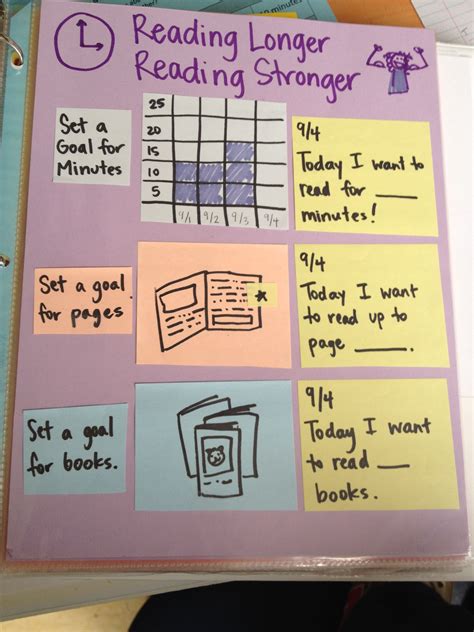 minutes?
Reading Longer
Reading Stronger
Set a
Goal for
Minutes
25
20
15
10
5
9/1 9/2 9/3 9/4
9/4
Today I want to
read for ____
minutes!
Set a goal
for pages
9/4
Today I want
to read up to
page ____.
Set a goal
for books.
9/4
Today I want
to read ____
books.